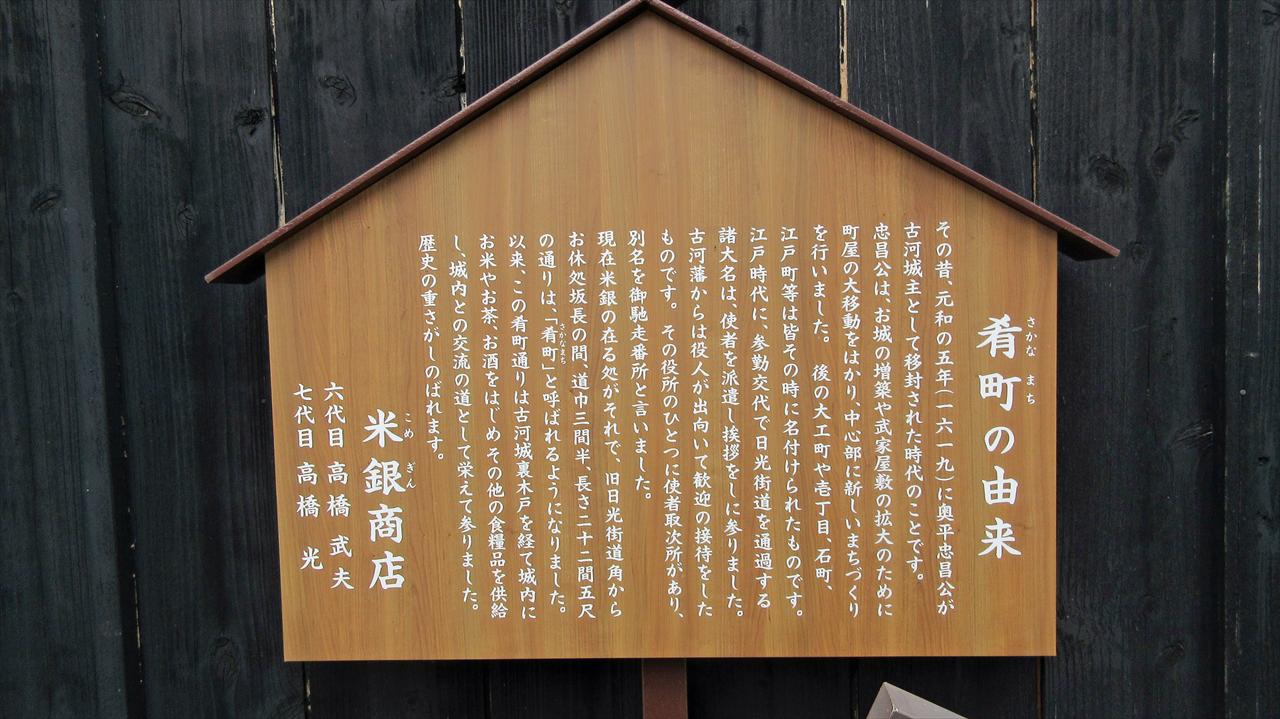 肴町の由来
さかな まち
その昔、元和の五年(一六一九)に奥平忠昌公が
古河城主として移封された時代のことです。
忠昌公は、お城の増築や武家屋敷の拡大のために
町屋の大移動をはかり、中心部に新しいまちづくり
を行いました。 後の大工町や壱丁目、石町、
江戸町等は皆その時に名付けられたものです。
江戸時代に、参勤交代で日光街道を通過する
諸大名は、使者を派遣し挨拶をしに参りました。
古河藩からは役人が出向いて歓迎の接待をした
ものです。 その役所のひとつに使者取次所があり、
別名を御馳走番所と言いました。
現在米銀の在る処がそれで、旧日光街道角から
お休処坂長の間、道巾三間半、長さ二十二間五尺
の通りは、「肴町」と呼ばれるようになりました。
さかなまち
以来、この肴町通りは古河城裏木戸を経て城内に
お米やお茶、お酒をはじめその他の食糧品を供給
し、城内との交流の道として栄えて参りました。
歴史の重さがしのばれます。
米銀商店
こめ ぎん
六代目 高橋 武夫
七代目 高橋 光